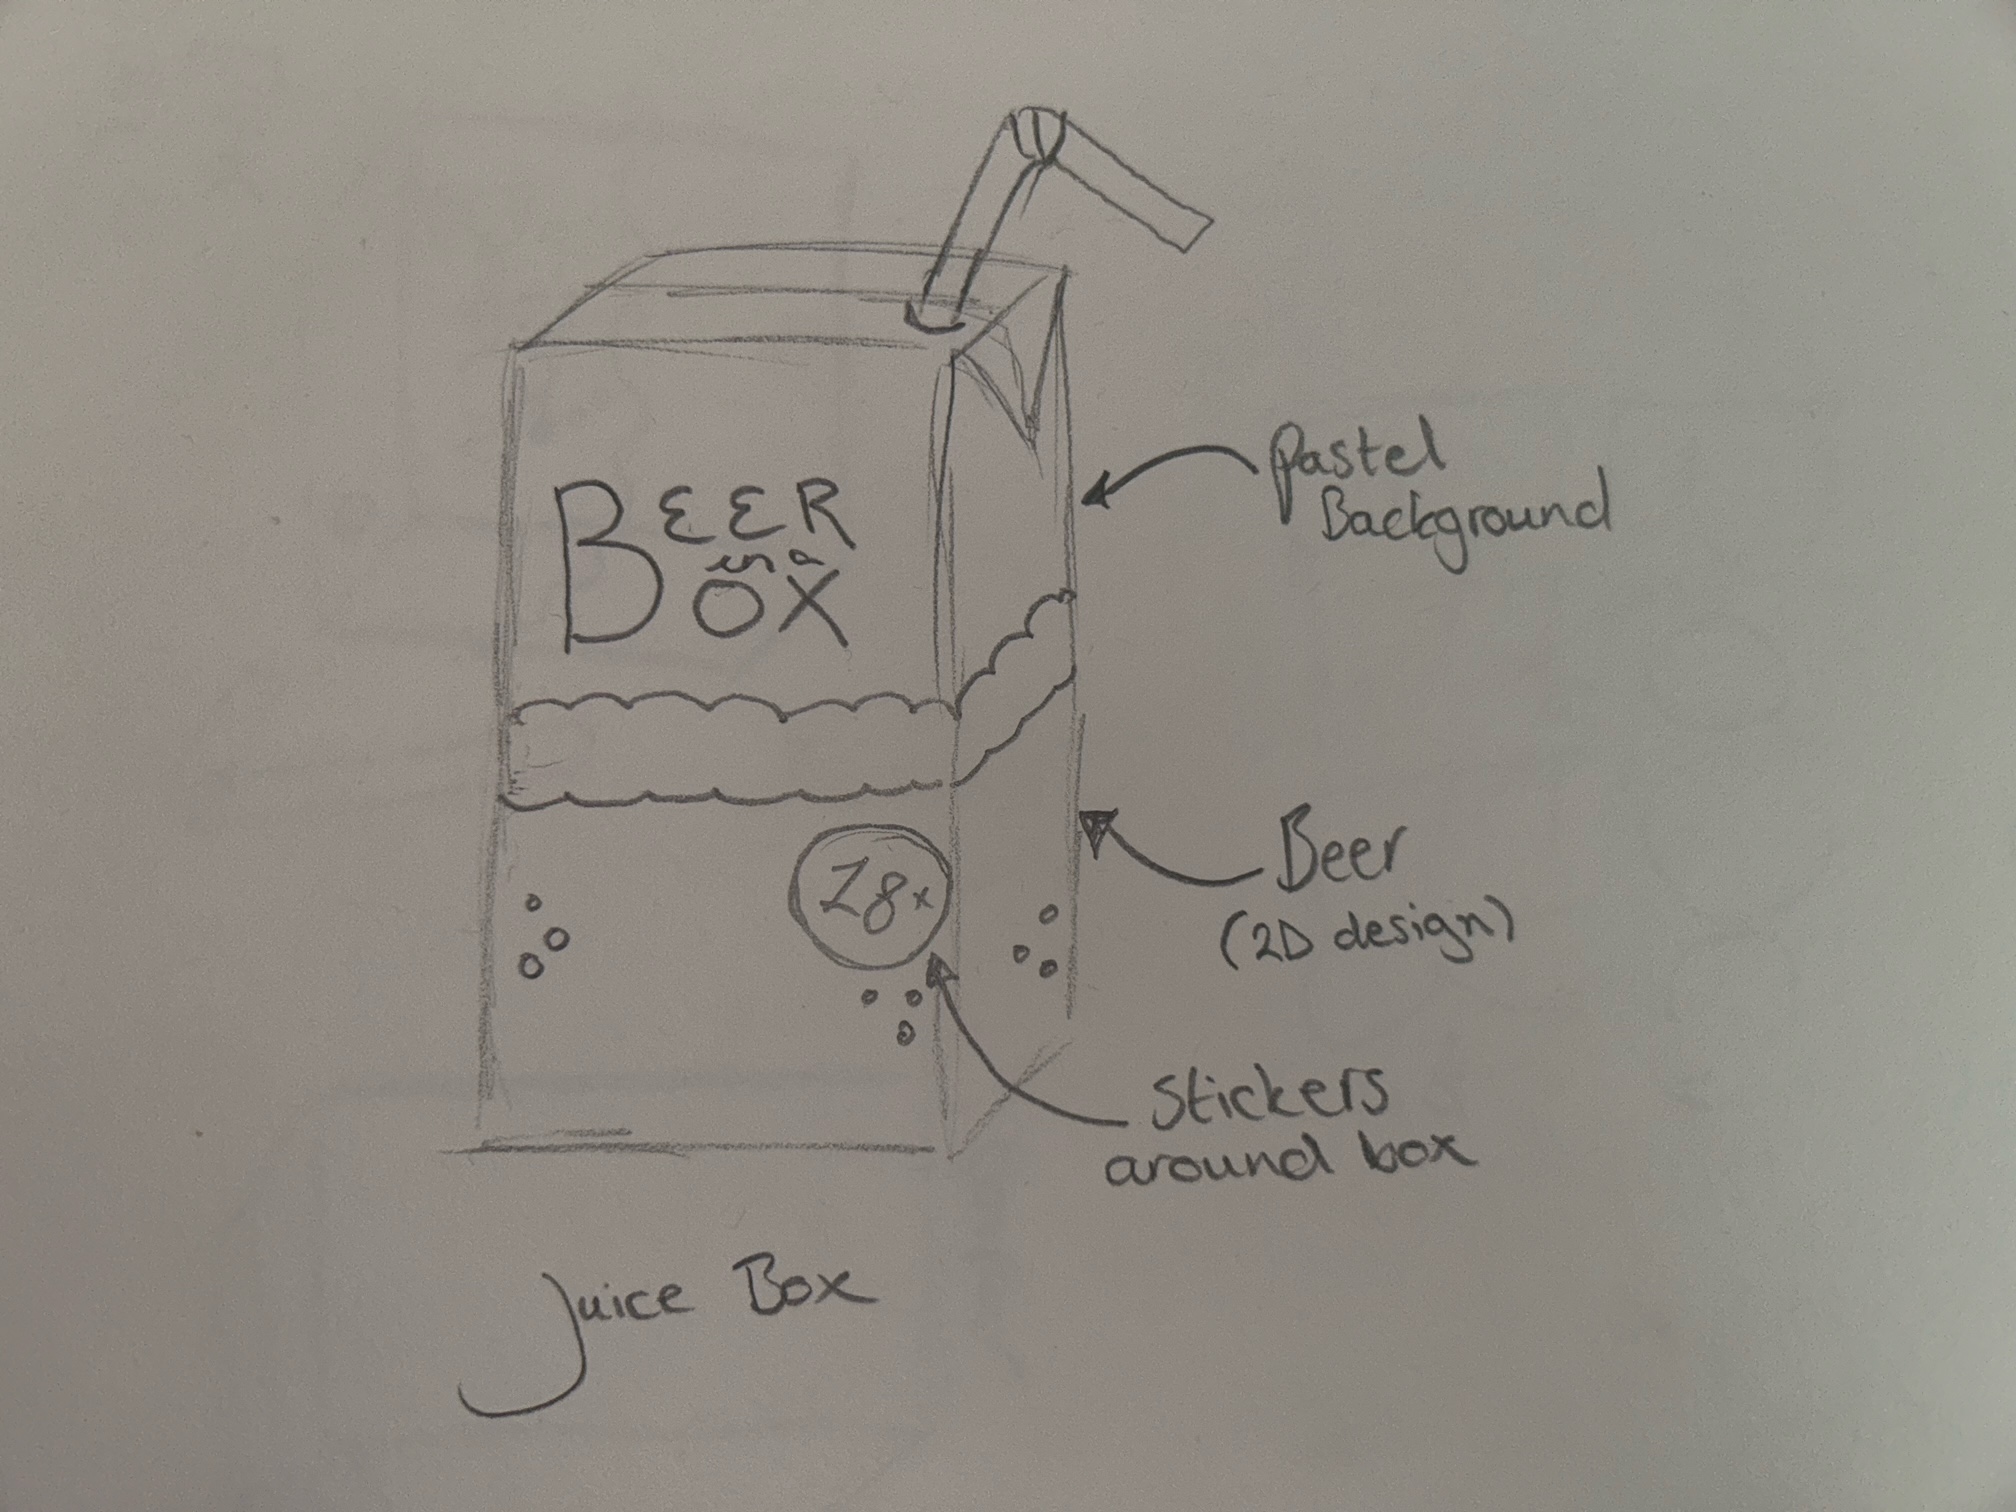 BEER
in a
OX
18x
Pastel
Background
Beer
(2D design)
Stickers
around box
Juice Box